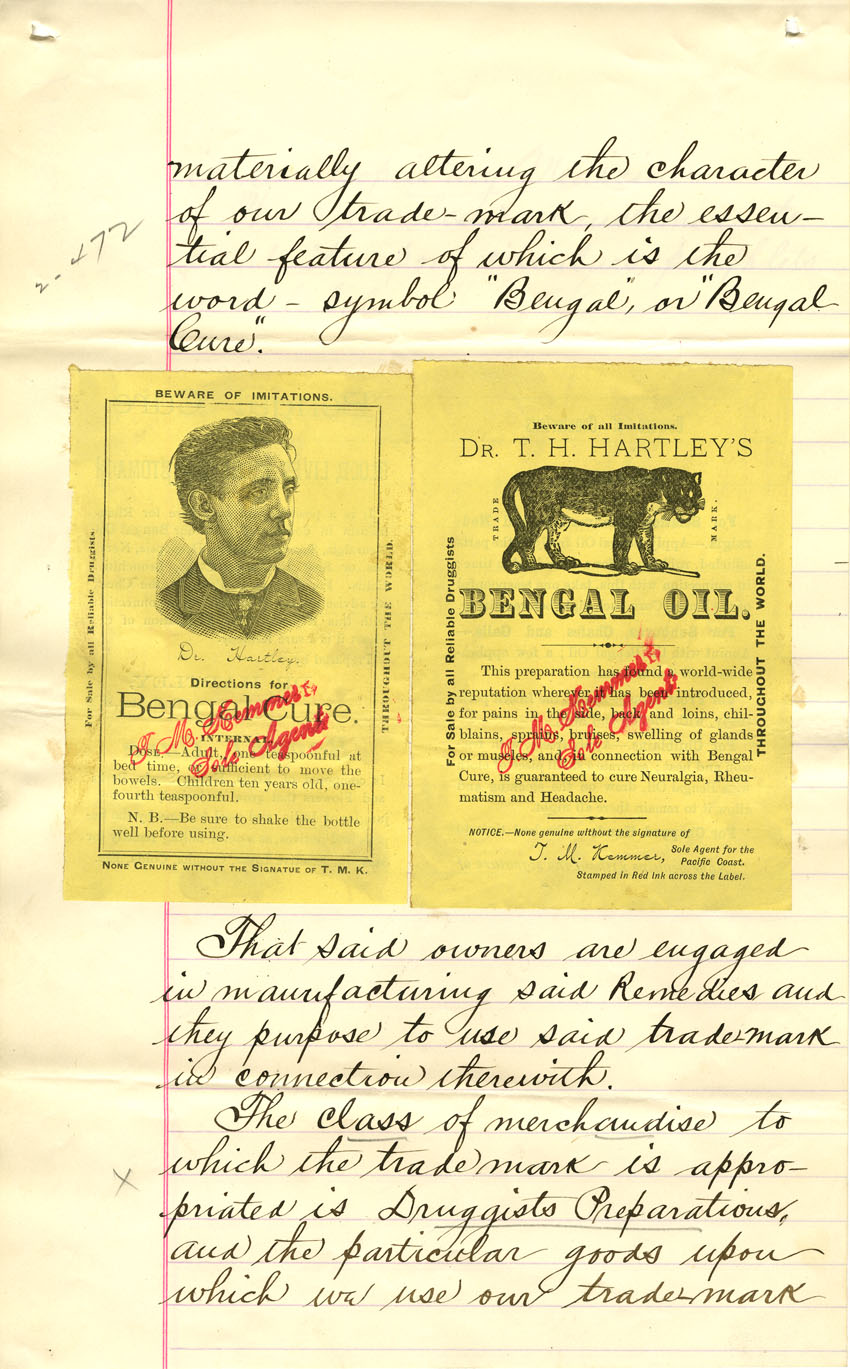 materially altering the character
of our trade-mark, the essen-
tial feature of which is the
word - symbol "Bengal", or "Bengal
Cure".
2-472
BEWARE OF IMITATIONS.
For Sale by all Reliable Druggists
THROUGHOUT THE WORLD.
Dr. Hartley.
Directions for
Bengal Cure.
INTERNAL.
Dose.—Adult, one teaspoonful at
bed time, or sufficient to move the
bowels. Children ten years old, one-
fourth teaspoonful.
N. B.—Be sure to shake the bottle
well before using.
NONE GENUINE WITHOUT THE SIGNATUE OF T. M. K.
T. M. Kemmer,
Sole Agent
Beware of all Imitations.
DR. T. H. HARTLEY'S
TRADE
MARK.
BENGAL OIL.
For Sale by all Reliable Druggists
THROUGHOUT THE WORLD.
This preparation has found a world-wide
reputation wherever it has been introduced,
for pains in the side, back and loins, chil-
blains, sprains, bruises, swelling of glands
or muscles, and in connection with Bengal
Cure, is guaranteed to cure Neuralgia, Rheu-
matism and Headache.
T. M. Kemmer,
Sole Agent
NOTICE.—None genuine without the signature of
T. M. Kemmer, Sole Agent for the
Pacific Coast.
Stamped in Red Ink across the Label.
That said owners are engaged
in manufacturing said Remedies and
they purpose to use said trade-mark
in connection therewith.
The class of merchandise to
x
which the trade mark is appro-
priated is Druggists Preparations,
and the particular goods upon
which we use our trade-mark